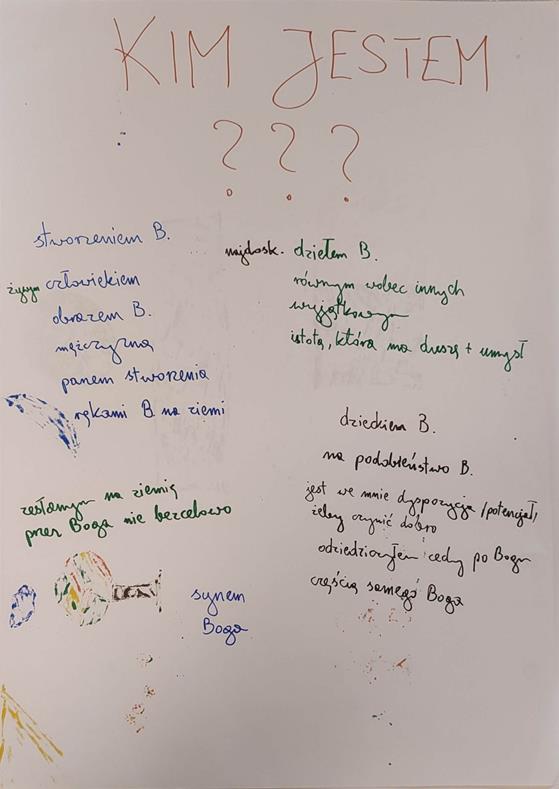 KIM JESTEM
? ? ?
stworzeniem B.
żywym człowiekiem
obrazem B.
mężczyzną
panem stworzenia
rękami B na ziemi
zesłanym na ziemię
przez Boga nie bezcelowo
synem
Boga
najdosk. dziełem B.
równym wobec innych
wyjątkowym
istotą, która ma duszę + umysł
dzieckiem B.
na podobieństwo B.
jest we mnie dyspozycja /potencjał/
żeby czynić dobro
odziedziczyłem cechy po Bogu
częścią samego Boga